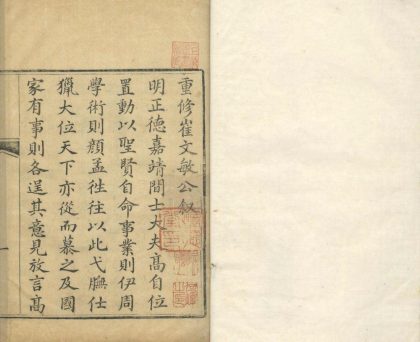 重修崔文敏公叙
明正德嘉靖間士大夫高自位
置動以聖賢自命事業則伊周
學術則顏孟徃徃以此弋膴仕
獵大位天下亦從而慕之及國
家有事則各逞其意見放言高